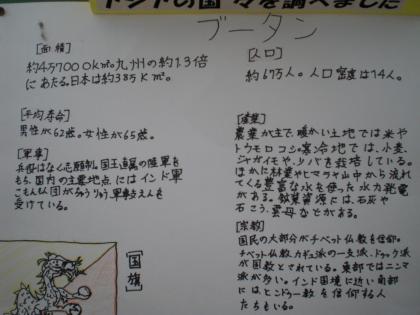 の国々を調べました
ブータン
[面積]
約47000km²。九州の約1.3倍
にあたる。日本は約38万km²。
[平均寿命]
男性が62歳。女性が65歳。
[軍事]
兵役はなく志願制。国王直属の陸軍を
もち、国内の主要地点にはインド軍
こもん団がちゅうりゅう、軍事支えんを
受けている。
[国旗]
[人口]
約67万人。人口密度は14人。
[産業]
農業が主で、暖かい土地では米や
トウモロコシ。寒冷地では、小麦、
ジャガイモや、ソバを栽培している。
ほかに林業やヒマラヤ山中から流れ
てくる豊富な水を使った水力発電
がある。鉱業資源には、石灰や
石こう、雲母などがある。
[宗教]
国民の大部分がチベット仏教を信仰。
チベット仏教、カギュ派の一支派、ドゥック派
が国教とされている。東部ではニンマ
派が多い。インド国境に近い南部
にはヒンドゥー教を信仰する人
たちもいる。